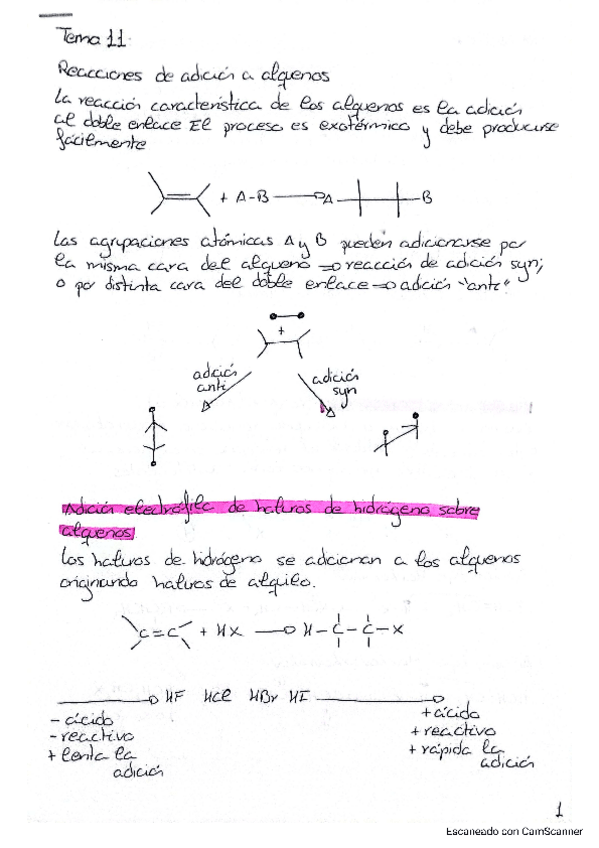 Tema 11.
Reacciones de adición a alquenos
La reacción característica de los alquenos es la adición
al doble enlace El proceso es exotérmico y debe producirse
fácilmente
+ A-B A B
Las agrupaciones atómicas A y B pueden adicionarse por
la misma cara del alqueno ⇒ reacción de adición syn;
o por distinta cara del doble enlace ⇒ adición "anti".
+
adición
anti
adición
syn
Adición electrófila de haluros de hidrógeno sobre
alquenos
Los haluros de hidrógeno se adicionan a los alquenos
originando haluros de alquilo.
C=C + HX → H-C-C-X
HF HCl HBr HI
- ácido
- reactivo
+ lenta la
adición
+ ácido
+ reactivo
+ rápida la
adición
1
Escaneado con CamScanner